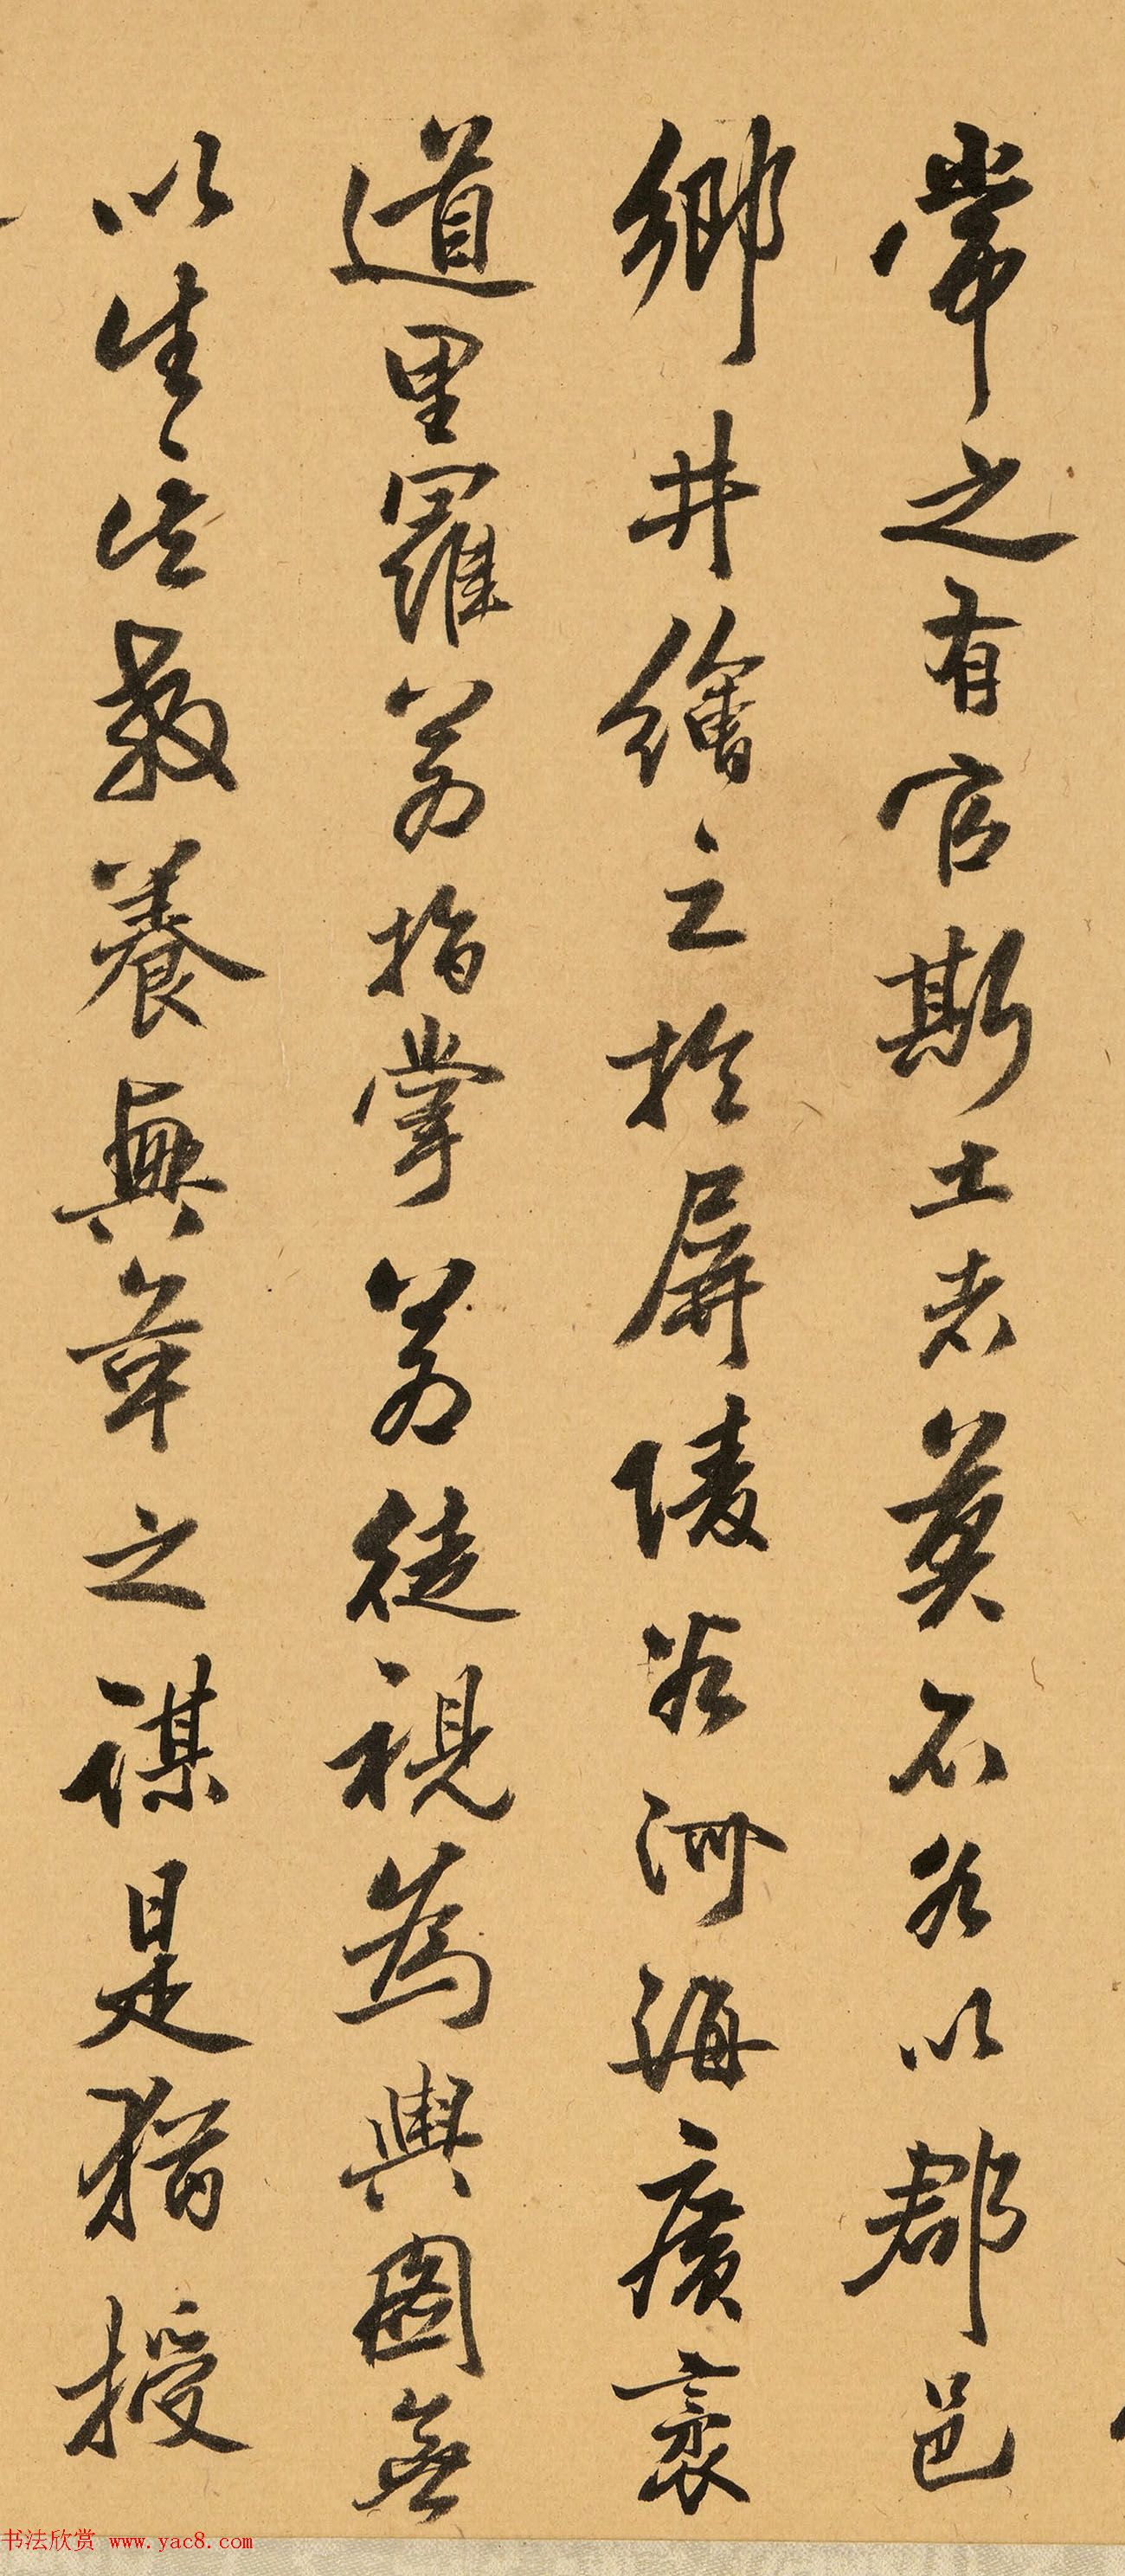 常之有官斯土者莫不各以郡邑
鄉井繪之於屏陵谷河海廣袤
道里羅若指掌若徒視為輿圖無
以生生教養興革之謀是猶授
书法欣赏 www.yac8.com